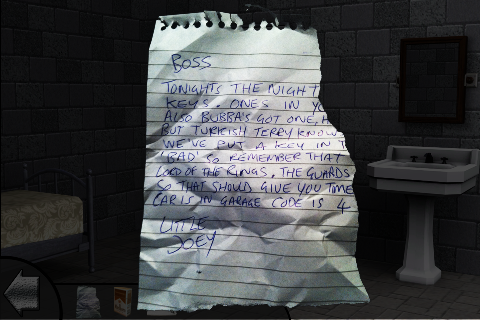 BOSS
TONIGHTS THE NIGHT
KEYS. ONE'S IN
ALSO BUBBA'S GOT ONE,
BUT TURKISH TERRY KNOW
WE'VE PUT A KEY IN
'BAD' SO REMEMBER THAT
LORD OF THE RINGS. THE GUARDS
SO THAT SHOULD GIVE YOU TIME
CAR IS IN GARAGE CODE IS 4
LITTLE
JOEY